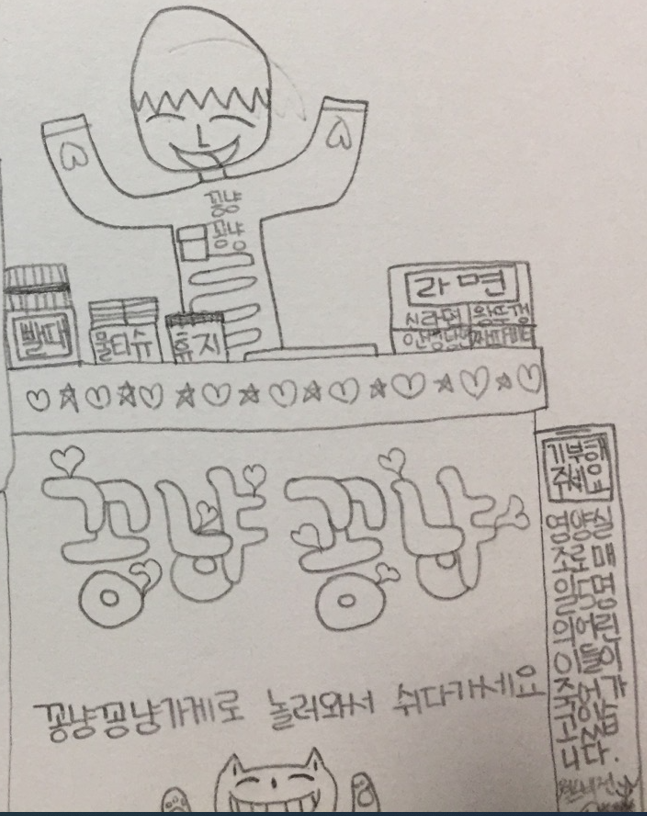 꽁냥
꽁냥
라면
신라면 왕뚜껑
안성탕면 짜파게티
빨대
물티슈
휴지
꽁냥꽁냥
꽁냥꽁냥가게로 놀러와서 쉬다가세요
기부해
주세요
영양실
조로 매
일 5명
의 어린
이들이
죽어가
고 있습
니다.